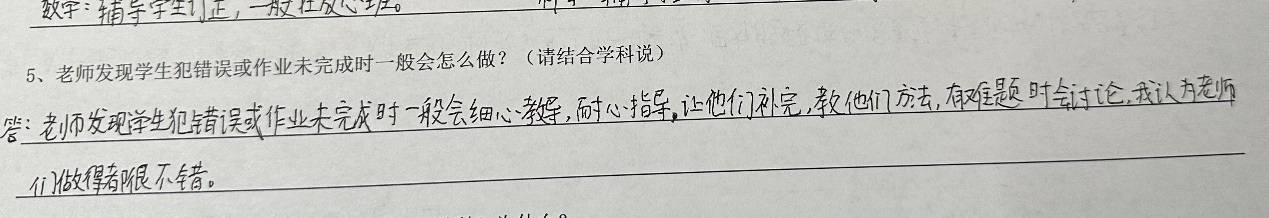 数学：辅导学生订正，一般在放心班。
5、老师发现学生犯错误或作业未完成时一般会怎么做？（请结合学科说）
答：老师发现学生犯错误或作业未完成时一般会细心教导，耐心指导。让他们补完，教他们方法，有难题时会讨论，我认为老师
们做得都很不错。